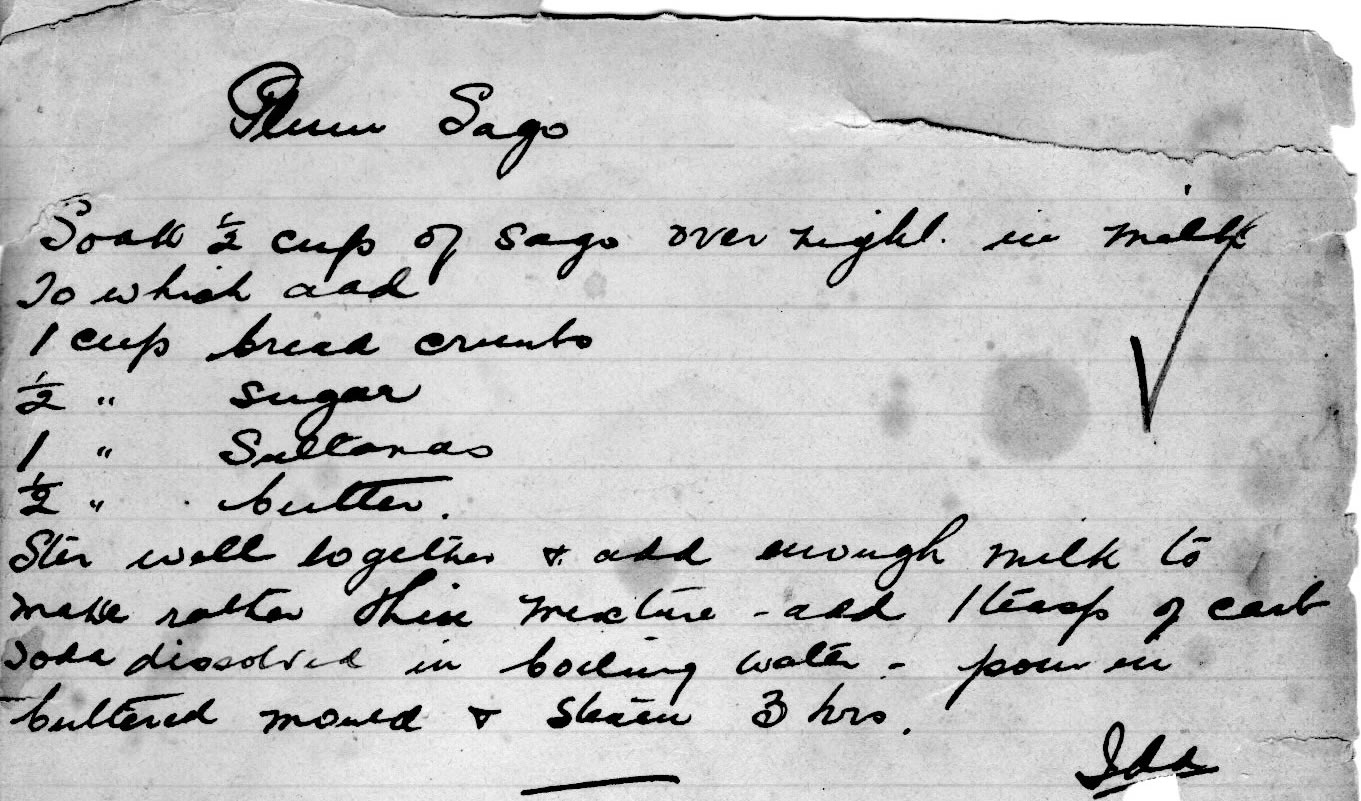 Plum Sago
Soak ½ cup of sago over night. in milk
To which add
1 cup bread crumbs
½ " sugar
1 " Sultanas
½ " butter.
Stir well together & add enough milk to
make rather thin mixture - add 1 teasp of carb
soda dissolved in boiling water - pour in
buttered mould & steam 3 hrs.
Ida